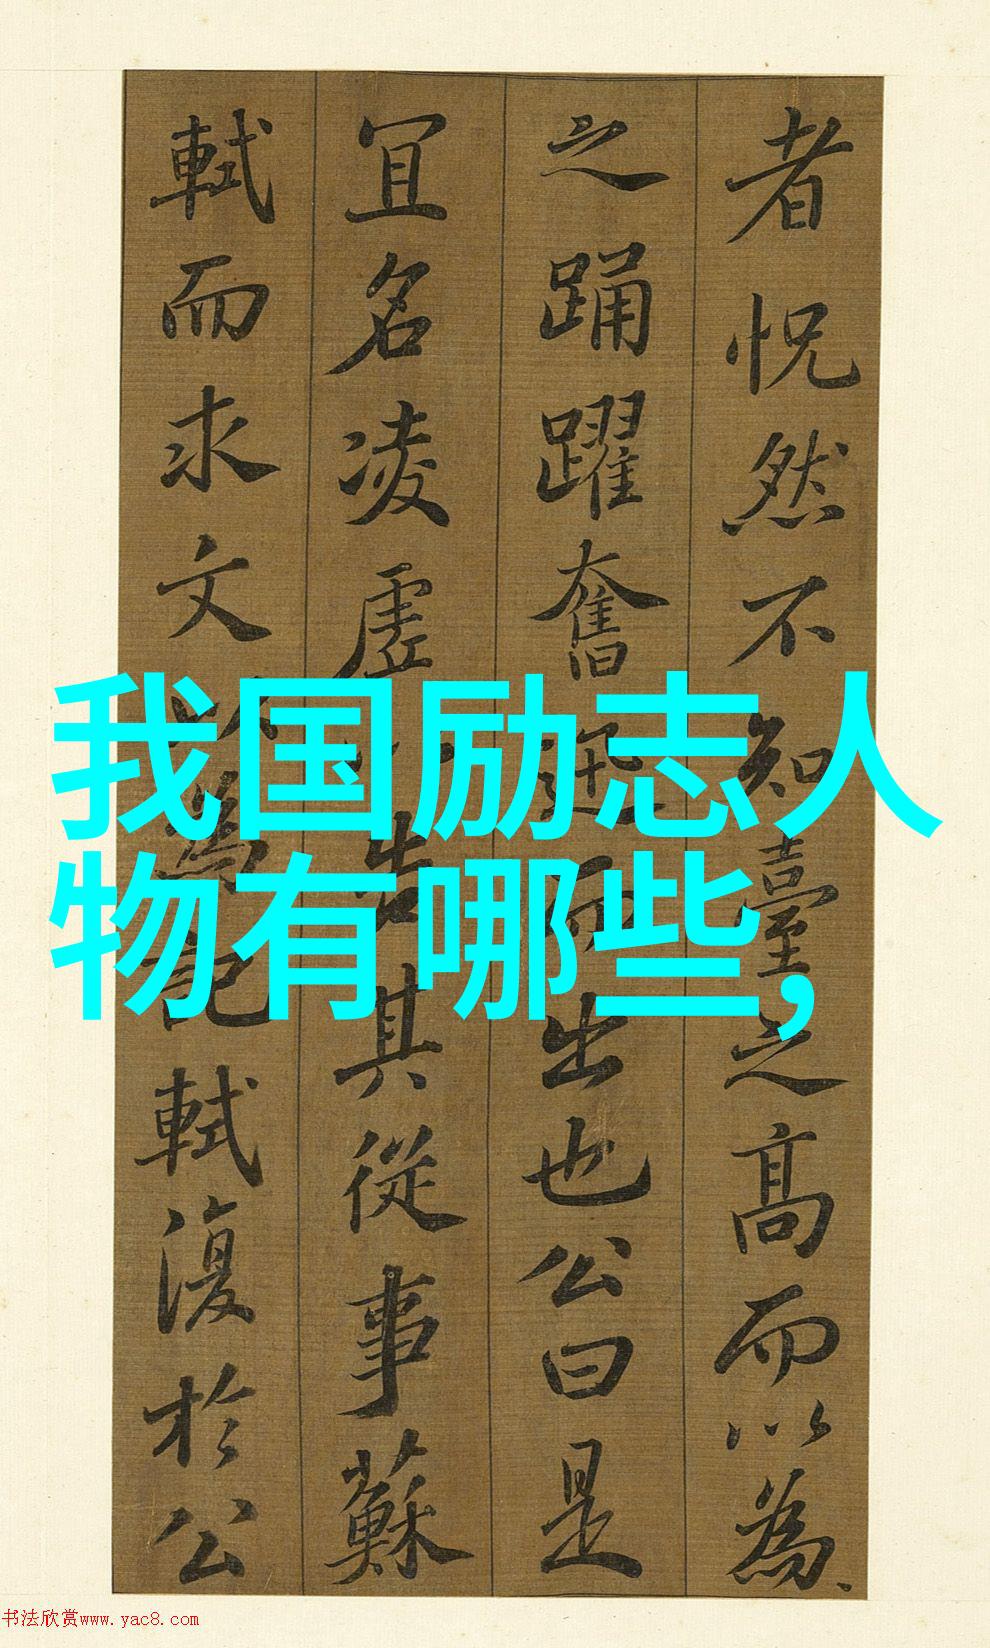 者怳然不知臺之高而以為
之踊躍奮迅而出也公曰是
冝名凌虛以告其從事蘇
軾而求文以為記軾復於公
我国励志人
物有哪些，
书法欣赏www.yac8.com